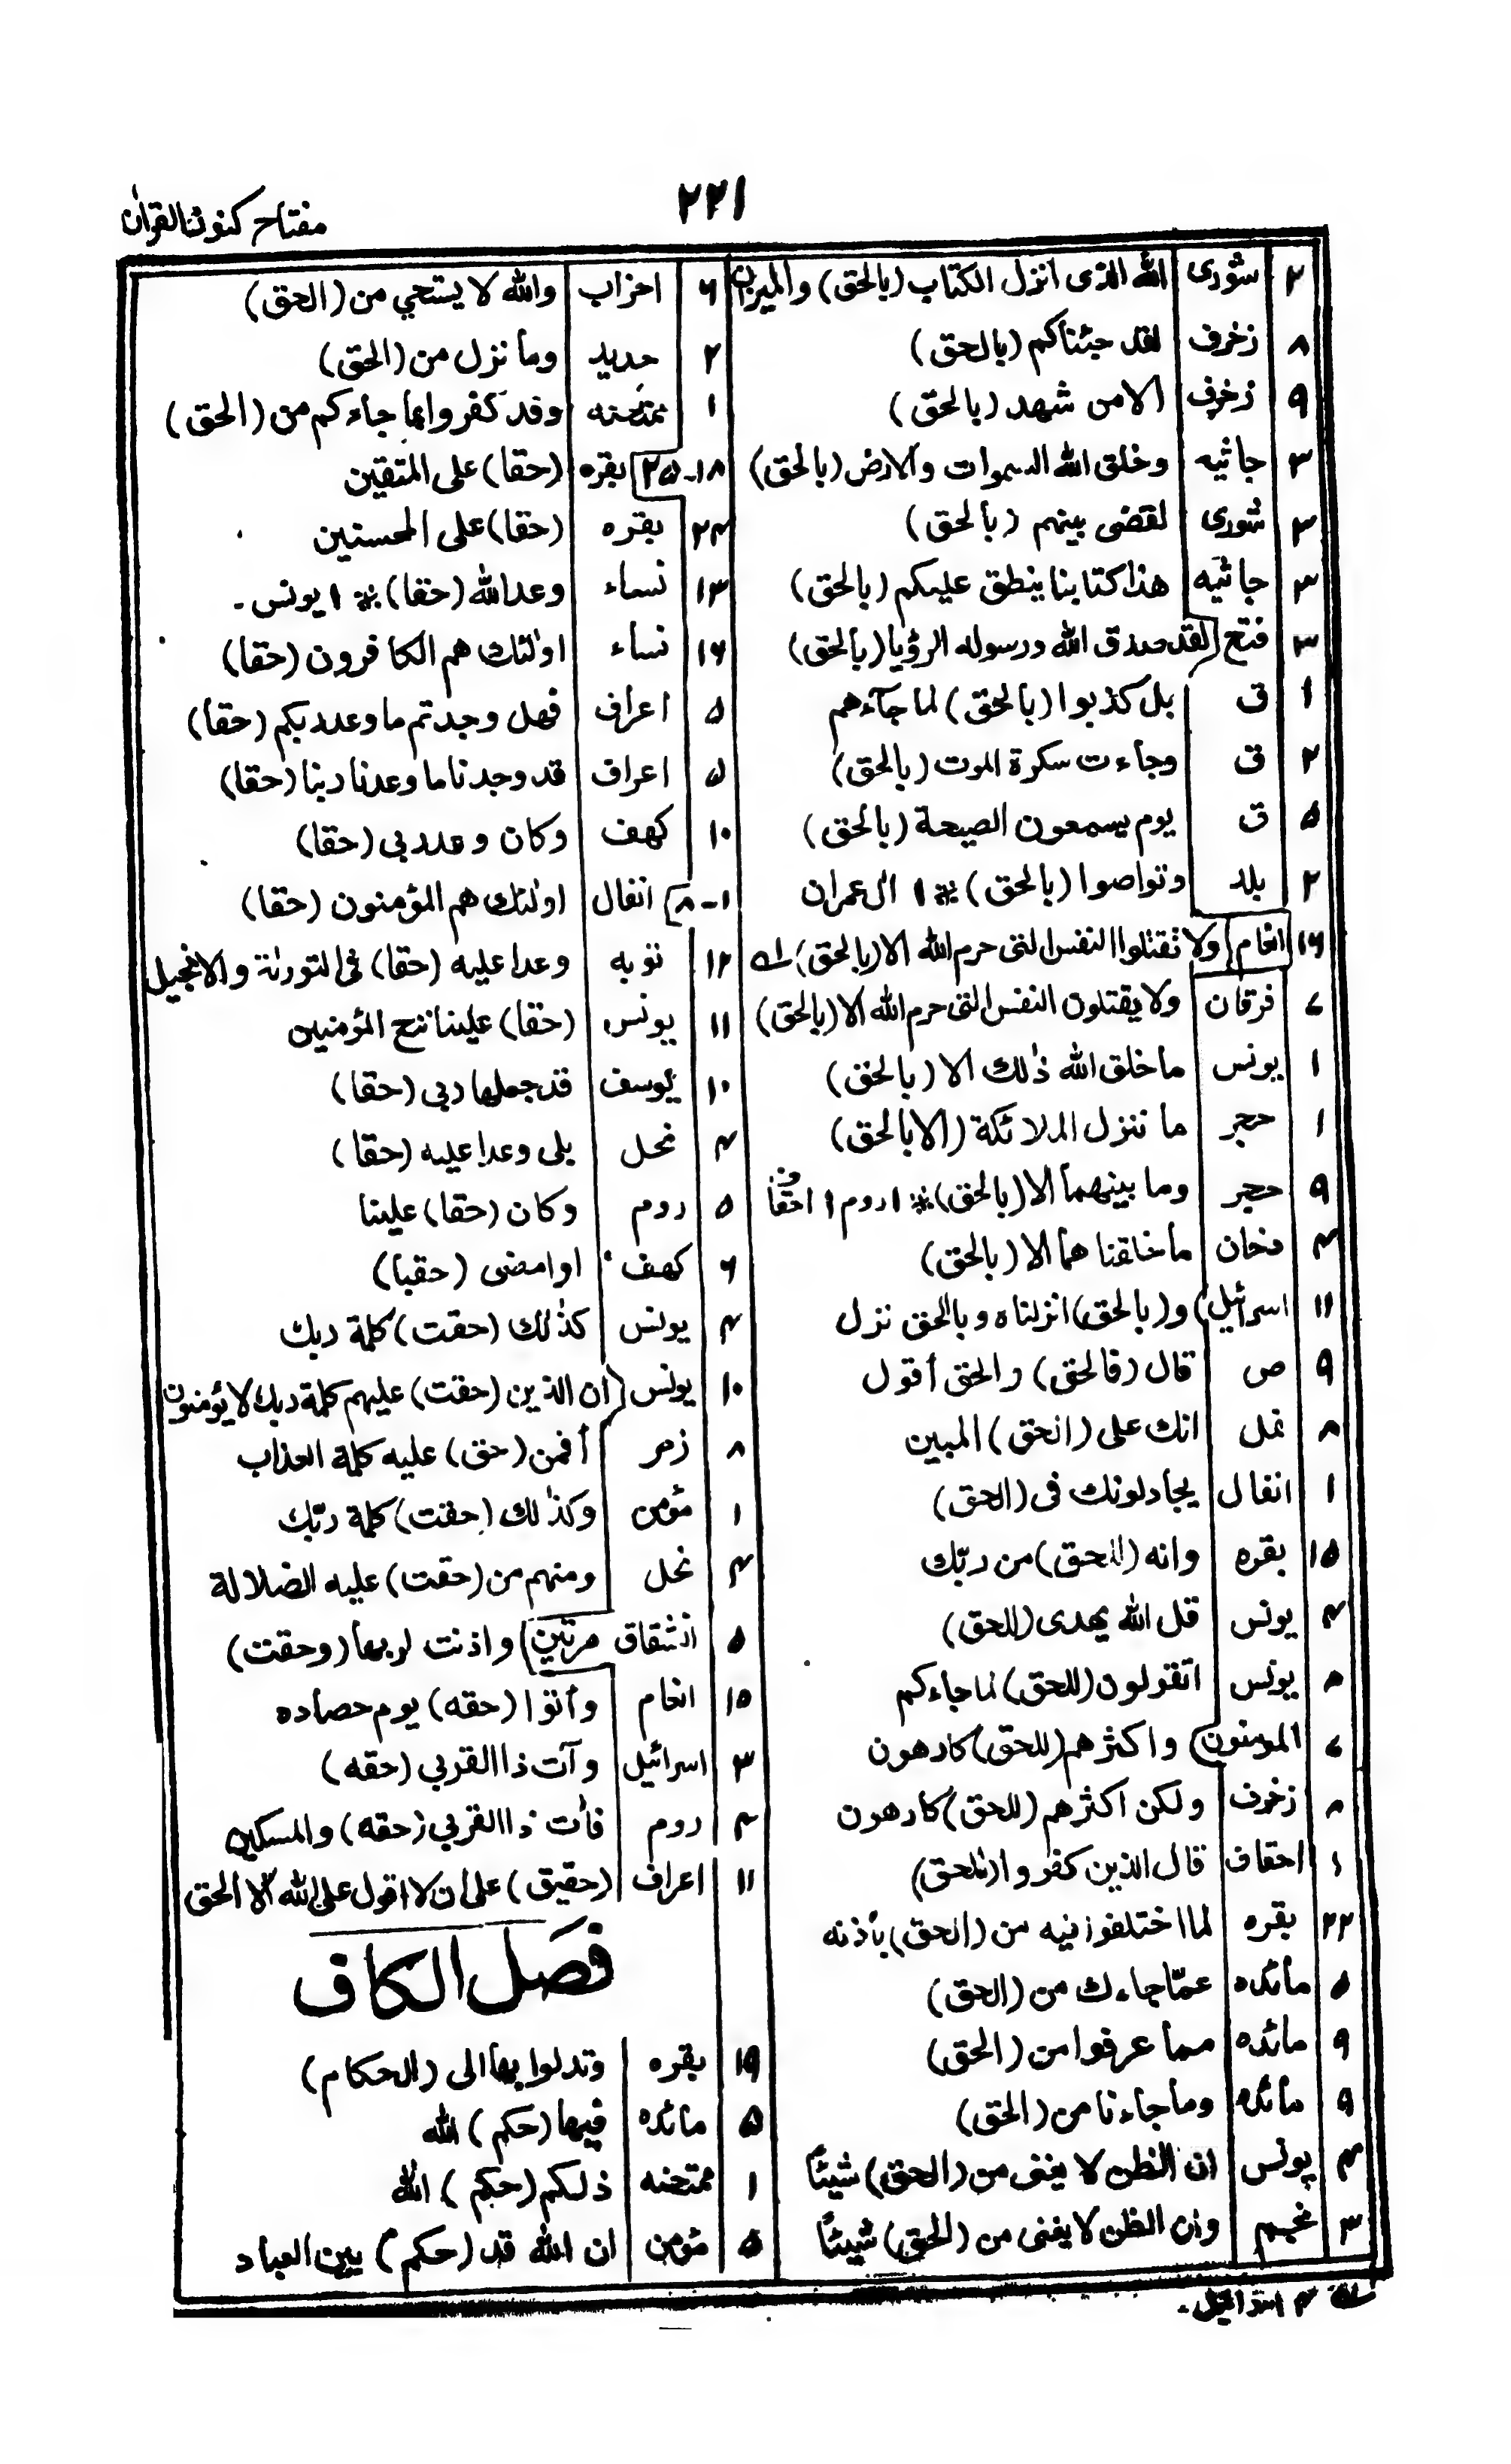 مفتاح كنوز القرآن
٢٢١
٢ شورى الله الذى انزل الكتاب (بالحق) والميزان
٨ زخرف لقد جئناكم (بالحق)
٩ زخرف الا من شهد (بالحق)
٣ جاثيه وخلق الله السموات والارض (بالحق)
٣ شورى لقضى بينهم (بالحق)
٣ جاثيه هذا كتابنا ينطق عليكم (بالحق)
٣ فتح لقد صدق الله ورسوله الرؤيا (بالحق)
١ ق بل كذبوا (بالحق) لما جآءهم
٢ ق وجاءت سكرة الموت (بالحق)
٥ ق يوم يسمعون الصيحة (بالحق)
٢ بلد وتواصوا (بالحق) ؞ ١ ال عمران
١٦ انعام ولا تقتلوا النفس التى حرم الله الا (بالحق) له
٤ فرقان ولا يقتلون النفس التى حرم الله الا (بالحق)
١ يونس ما خلق الله ذٰلك الا (بالحق)
١ حجر ما ننزل الملائكة (الا بالحق)
٩ حجر وما بينهما الا (بالحق) ؞ ١ روم ١ احقاف
٣ دخان ما خلقنا هما الا (بالحق)
١١ اسرائيل و(بالحق) انزلناه وبالحق نزل
٩ ص قال (فالحق) والحق أقول
٨ نمل انك على (الحق) المبين
١ انفال يجادلونك فى (الحق)
١٥ بقره وانه (للحق) من ربّك
٣ يونس قل الله يهدى (للحق)
٨ يونس اتقولون (للحق) لما جاءكم
٤ المومنون واكثرهم (للحق) كارهون
٨ زخرف ولكن اكثرهم (للحق) كارهون
١ احقاف قال الذين كفروا (للحق)
٢٢ بقره لما اختلفوا فيه من (الحق) بأذنه
٥ مائده عمّا جاءك من (الحق)
٩ مائده مما عرفوا من (الحق)
٩ مائده وما جاءنا من (الحق)
٣ يونس ان الظن لا يغنى من (الحق) شيئاً
٣ نجم وان الظن لا يغنى من (الحق) شيئاً
٦ احزاب والله لا يستحي من (الحق)
٢ حديد وما نزل من (الحق)
١ ممتحنه وقد كفروا بما جاءكم من (الحق)
١٨-٢٥ بقره (حقا) على المتقين
٢٣ بقره (حقا) على المحسنين
١٣ نساء وعد الله (حقا) ؞ ١ يونس -
١٦ نساء اولٰئك هم الكافرون (حقا)
٥ اعراف فهل وجدتم ما وعد ربكم (حقا)
٥ اعراف قد وجدنا ما وعدنا ربنا (حقا)
١٠ كهف وكان وعد ربى (حقا)
١-٨ انفال اولٰئك هم المؤمنون (حقا)
١٢ توبه وعدا عليه (حقا) فى التورٰىة والانجيل
١١ يونس (حقا) علينا ننج المؤمنين
١٠ يوسف قد جعلها ربى (حقا)
٣ نحل بلى وعدا عليه (حقا)
٥ روم وكان (حقا) علينا
٦ كهف او امضى (حقبا)
٣ يونس كذٰلك (حقت) كلمة ربك
١٠ يونس ان الذين (حقت) عليهم كلمة ربك لا يؤمنون
٨ زمر أفمن (حق) عليه كلمة العذاب
١ مؤمن وكذٰلك (حقت) كلمة ربّك
٣ نحل ومنهم من (حقت) عليه الضلالة
٥ انشقاق مرتين واذنت لربها (وحقت)
١٥ انعام وأتوا (حقه) يوم حصاده
٣ اسرائيل وآت ذا القربى (حقه)
٣ روم فأت ذا القربى (حقه) والمسكين
١١ اعراف (حقيق) على ان لا اقول على الله الا الحق
فصل الكاف
١٩ بقره وتدلوا بها الى (الحكام)
٥ مائده فيها (حكم) الله
١ ممتحنه ذلكم (حكم) الله
٥ مؤمن ان الله قد (حكم) بين العباد
له ٣ اسرائيل -